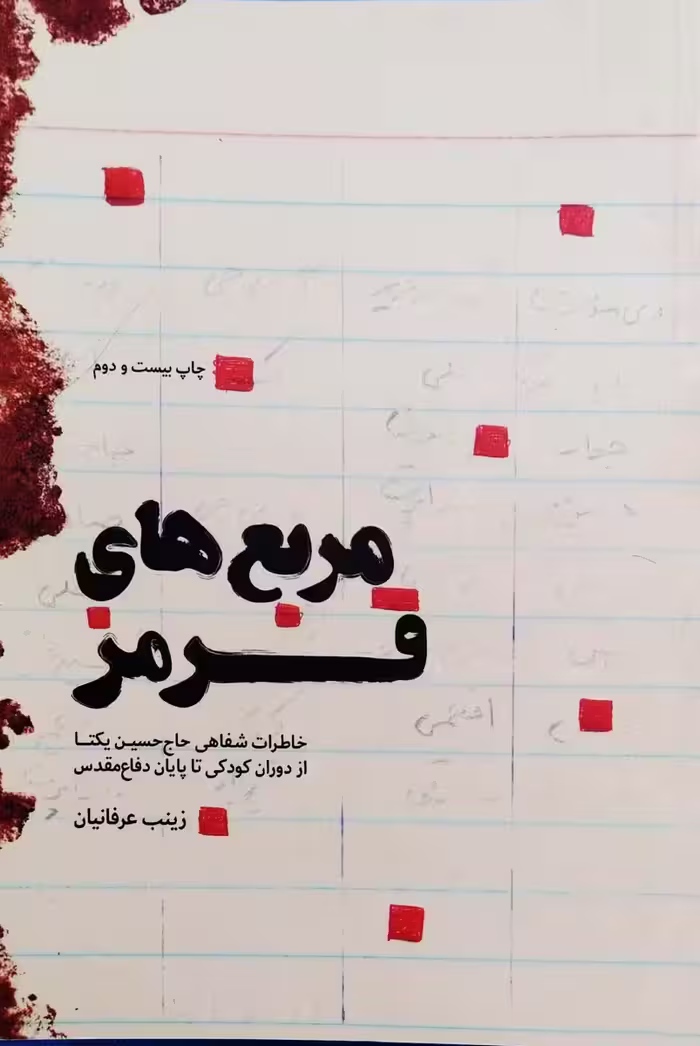 چاپ بیست و دوم
مربع های
قرمز
خاطرات شفاهی حاج‌حسین یکتا
از دوران کودکی تا پایان دفاع‌مقدس
زینب عرفانیان